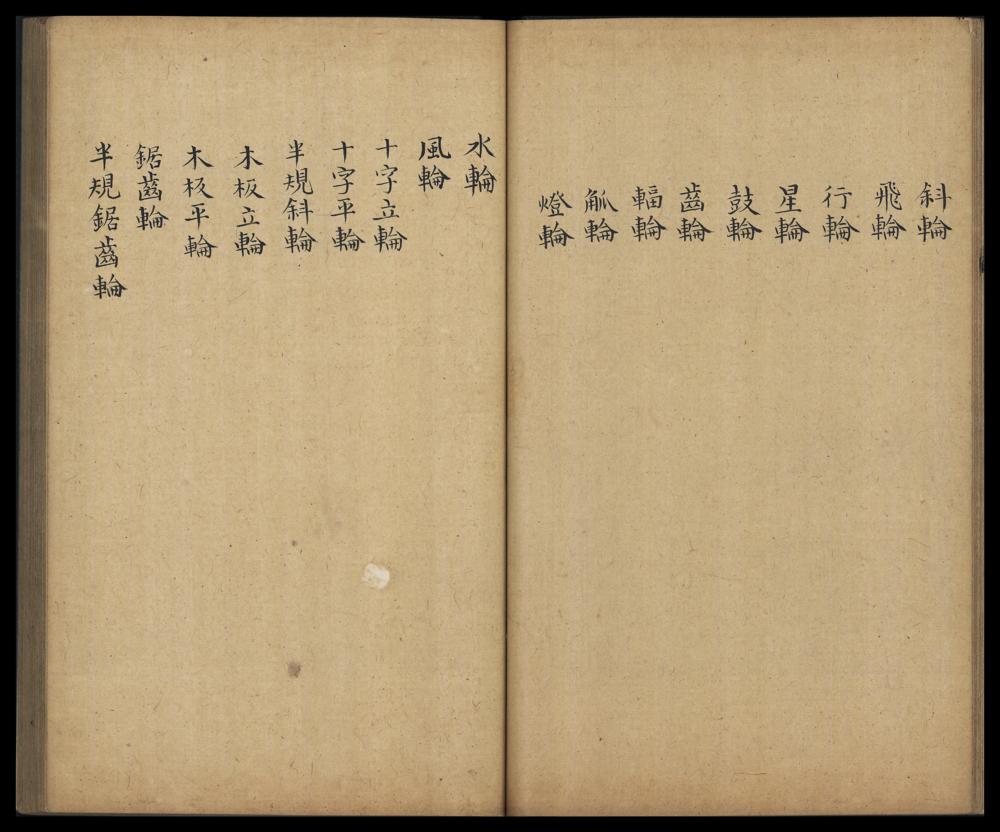 斜輪
飛輪
行輪
星輪
鼓輪
齒輪
輻輪
觚輪
燈輪
水輪
風輪
十字立輪
十字平輪
半規斜輪
木板立輪
木板平輪
鋸齒輪
半規鋸齒輪